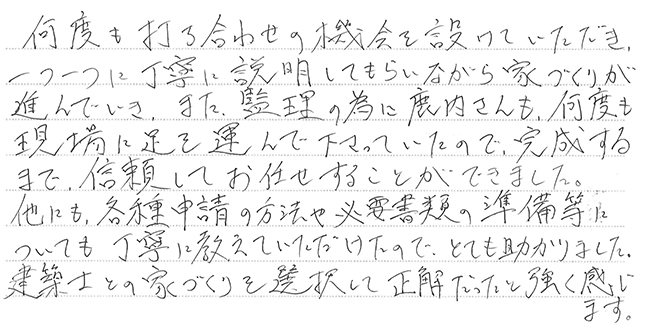 何度も打ち合わせの機会を設けていただき、
一つ一つに丁寧に説明してもらいながら家づくりが
進んでいき、また、監理の為に鹿内さんも、何度も
現場に足を運んで下さっていたので、完成する
まで、信頼してお任せすることができました。
他にも、各種申請の方法や必要書類の準備等に
ついても丁寧に教えていただけたので、とても助かりました。
建築士との家づくりを選択して正解だったと強く感じ
ます。